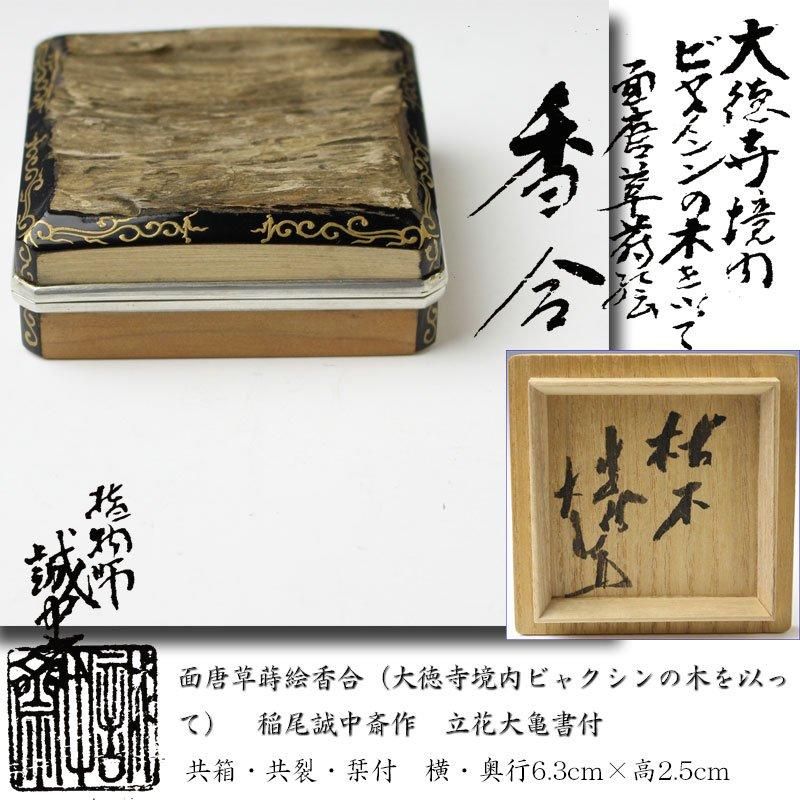 大徳寺境内
ビャクシンの木を以て
面唐草蒔絵
香合
枯木
指物師
誠中斎
面唐草蒔絵香合（大徳寺境内ビャクシンの木を以っ
て）　稲尾誠中斎作　立花大亀書付
共箱・共裂・栞付　横・奥行6.3cm×高2.5cm